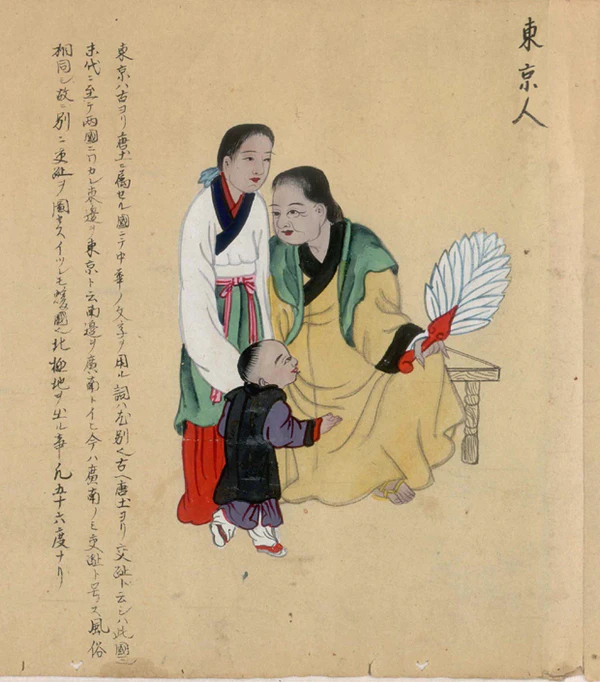 東京人
東京ハ古ヨリ唐土ニ属セル國ニテ中華ノ文字ヲ用ル詞ハ各別也古ヘ唐土ヨリ交趾ト云シハ此國也
末代ニ至テ両國ニワカレ東邊ヲ東京ト云南邊ヲ廣南トイヒ今ハ廣南ノミ交趾ト号ス風俗
相同シ故ニ別ニ交趾ヲ圖セスイツレモ煖國也北極地ヲ出ル事凡五十六度ナリ